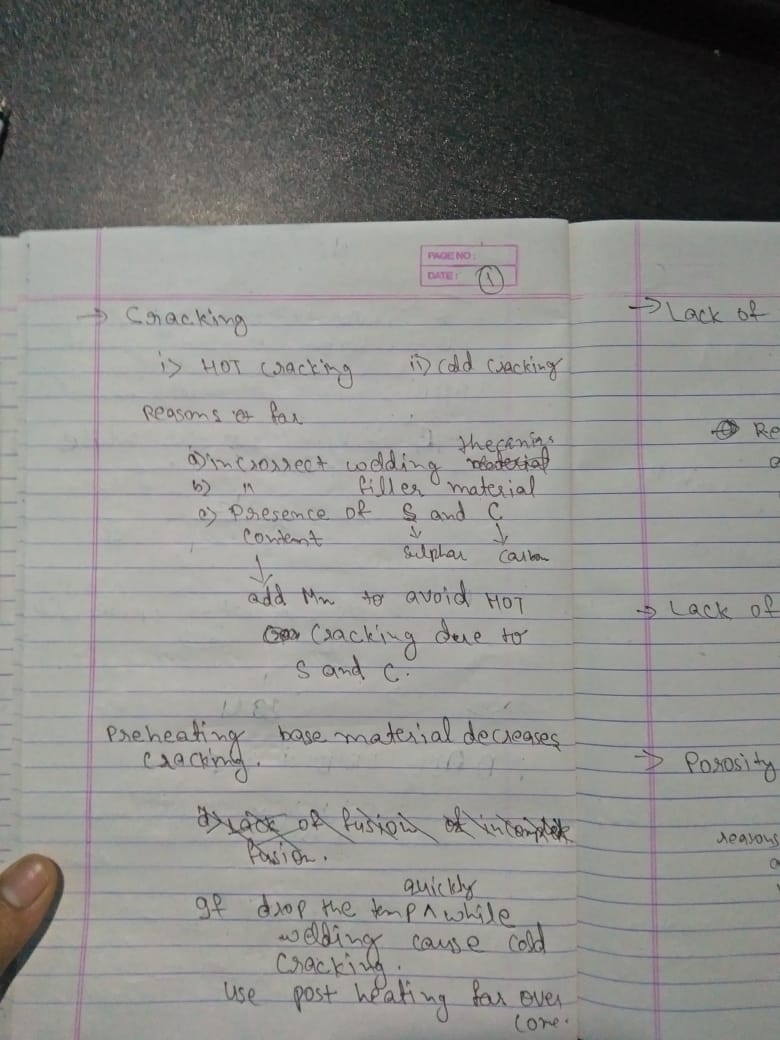 PAGE NO:
DATE: 1
→ Cracking
i> HOT Cracking ii) Cold Cracking
Reasons for
a) incorrect welding
b) " filler material
c) Presence of S and C
content
↓ ↓
Sulphar Carbon
↓
add Mn to avoid HOT
Cracking due to
S and C.
Preheating base material decreases
Cracking.
d) Lack of fusion of incomplete
fusion.
quickly
If drop the temp ^ while
welding cause cold
Cracking.
Use post heating for over
come.
→ Lack of
Re
a
→ Lack of
→ Porosity
reasons
a